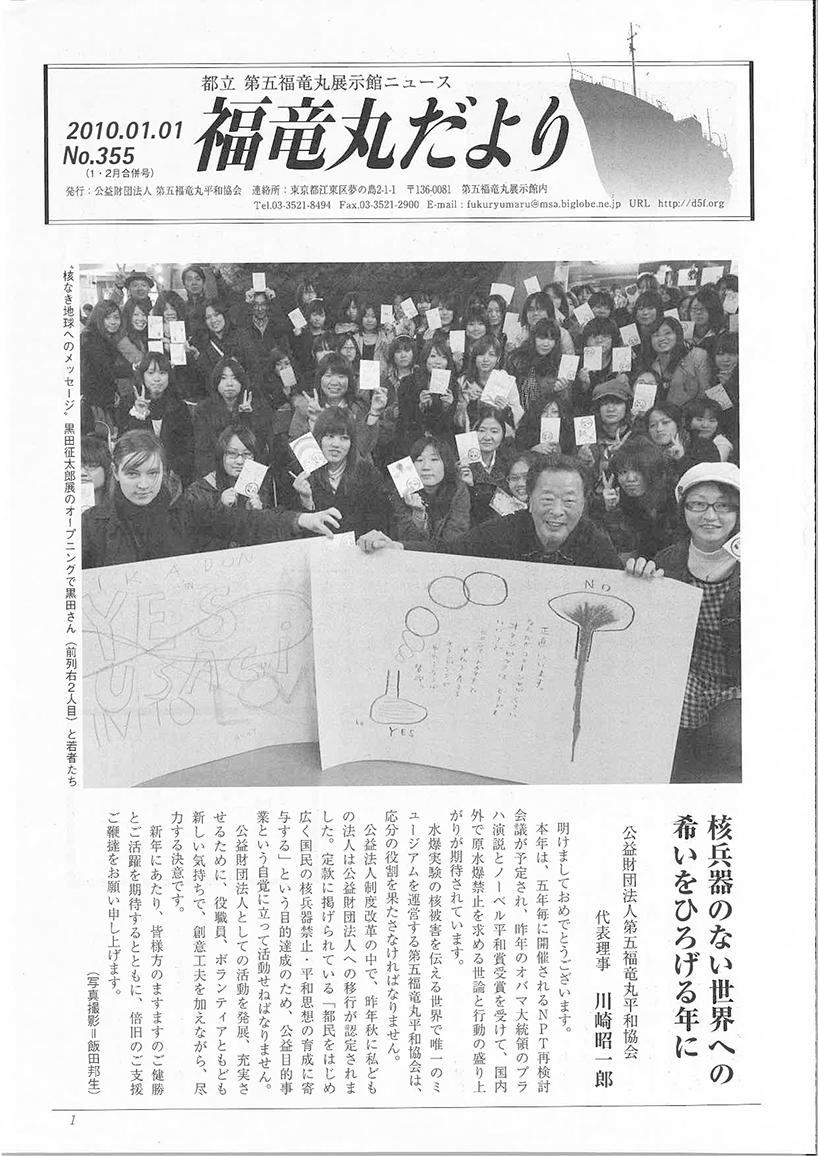 都立 第五福竜丸展示館ニュース
福竜丸だより
2010.01.01
No.355
（1・2月合併号）
発行：公益財団法人 第五福竜丸平和協会　連絡所：東京都江東区夢の島2-1-1　〒136-0081　第五福竜丸展示館内
Tel.03-3521-8494　Fax.03-3521-2900　E-mail : fukuryumaru@msa.biglobe.ne.jp　URL　http://d5f.org
“核なき地球へのメッセージ”黒田征太郎展のオープニングで黒田さん（前列右2人目）と若者たち
IKADON
YES
USA
INTO
NO
YES
核兵器のない世界への
希いをひろげる年に
公益財団法人第五福竜丸平和協会
代表理事　川崎昭一郎
明けましておめでとうございます。
本年は、五年毎に開催されるNPT再検討
会議が予定され、昨年のオバマ大統領のプラ
ハ演説とノーベル平和賞受賞を受けて、国内
外で原水爆禁止を求める世論と行動の盛り上
がりが期待されています。
水爆実験の核被害を伝える世界で唯一のミ
ュージアムを運営する第五福竜丸平和協会は、
応分の役割を果たさなければなりません。
公益法人制度改革の中で、昨年秋に私ども
の法人は公益財団法人への移行が認定されま
した。定款に掲げられている「都民をはじめ
広く国民の核兵器禁止・平和思想の育成に寄
与する」という目的達成のため、公益目的事
業という自覚に立って活動せねばなりません。
公益財団法人としての活動を発展、充実さ
せるために、役職員、ボランティアともども
新しい気持ちで、創意工夫を加えながら、尽
力する決意です。
新年にあたり、皆様方のますますのご健勝
とご活躍を期待するとともに、倍旧のご支援
ご鞭撻をお願い申し上げます。
（写真撮影＝飯田邦生）
1